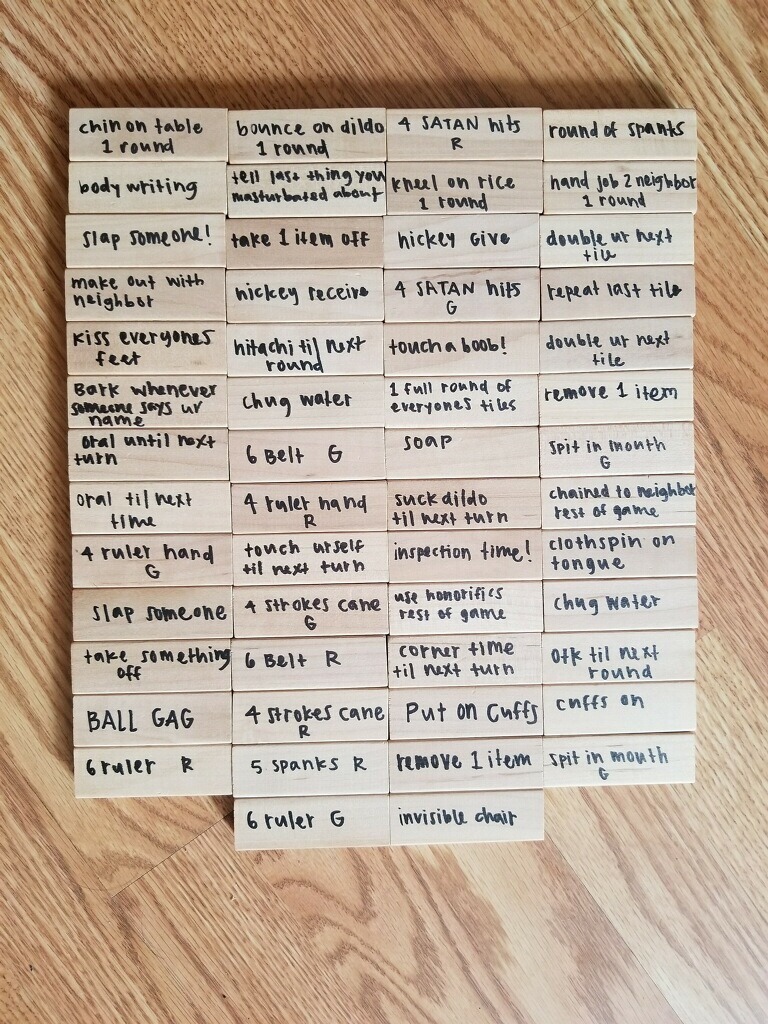 chin on table
1 round
bounce on dildo
1 round
4 SATAN hits
R
round of spanks
body writing
tell last thing you
masturbated about
kneel on rice
1 round
hand job 2 neighbor
1 round
slap someone!
take 1 item off
hickey give
double ur next
tile
make out with
neighbor
hickey receive
4 SATAN hits
G
repeat last tile
kiss everyones
feet
hitachi til next
round
touch a boob!
double ur next
tile
Bark whenever
someone says ur
name
chug water
1 full round of
everyones tiles
remove 1 item
oral until next
turn
6 Belt G
soap
spit in mouth
G
oral til next
time
4 ruler hand
R
suck dildo
til next turn
chained to neighbor
rest of game
4 ruler hand
G
touch urself
til next turn
inspection time!
clothspin on
tongue
slap someone
4 strokes cane
G
use honorifics
rest of game
chug water
take something
off
6 Belt R
corner time
til next turn
otk til next
round
BALL GAG
4 strokes cane
R
Put on Cuffs
cuffs on
6 ruler R
5 spanks R
remove 1 item
spit in mouth
G
6 ruler G
invisible chair